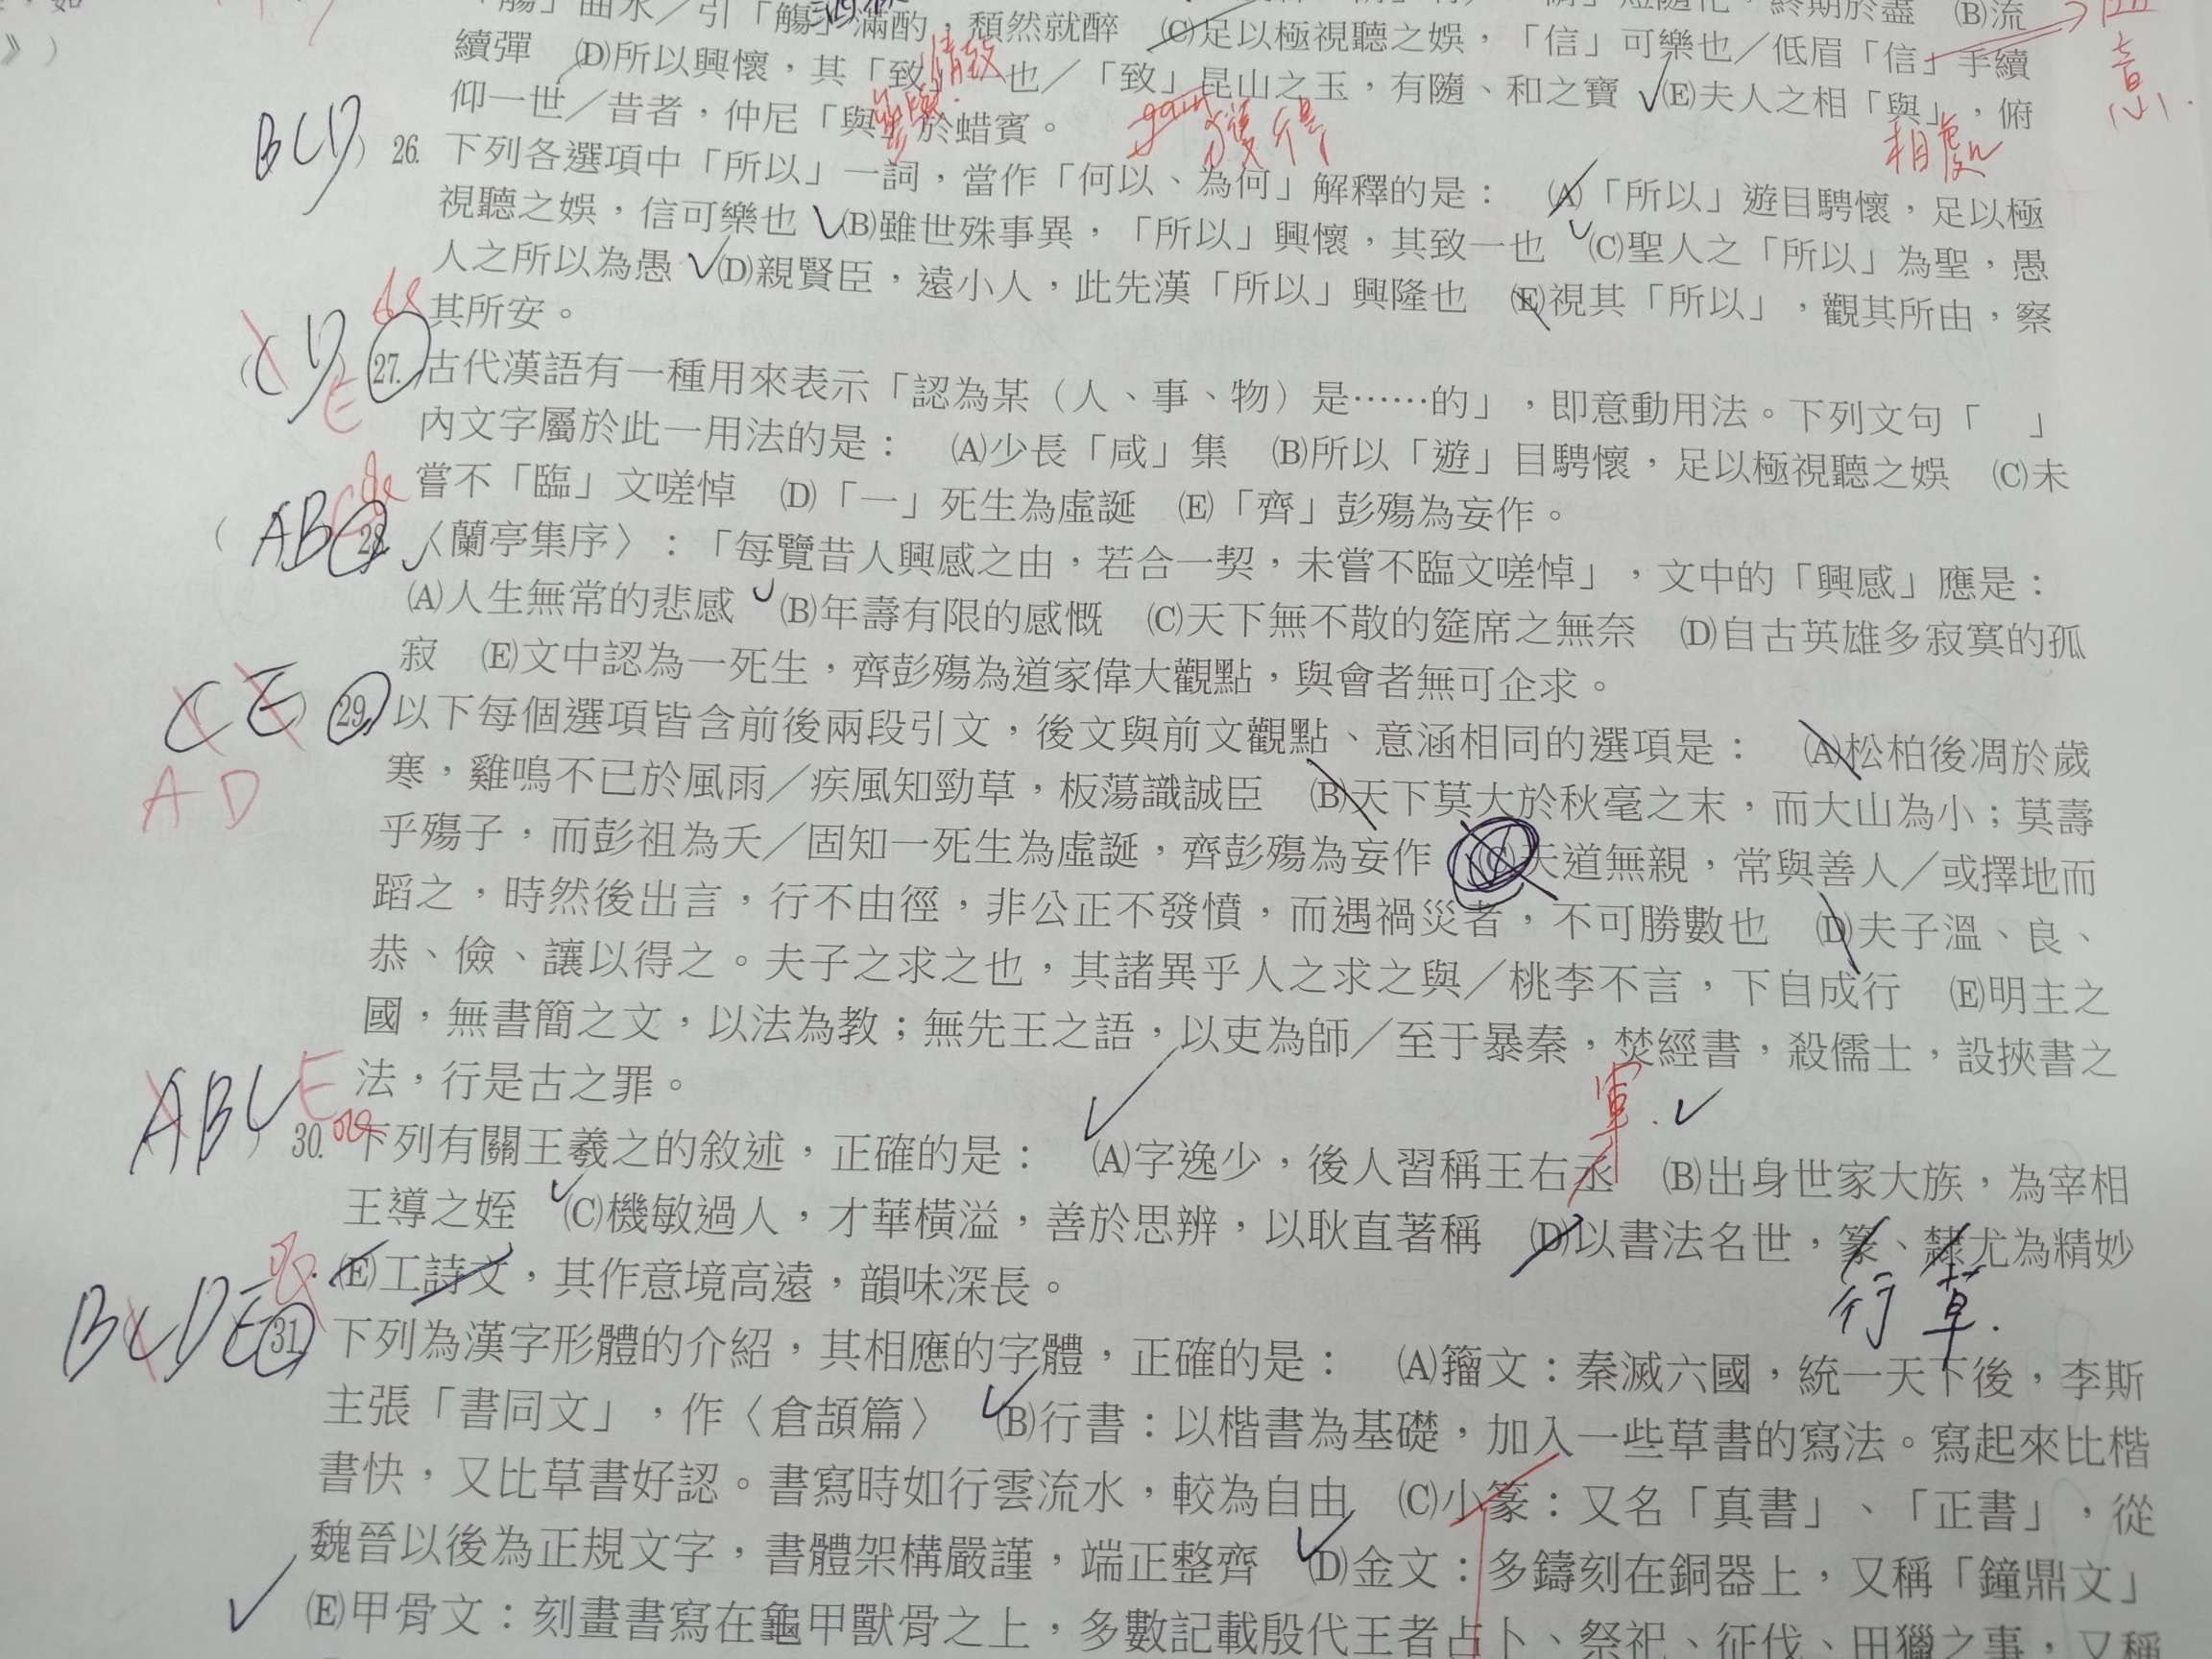 「觴」曲水／引「觴」滿酌，頹然就醉
終期於盡 (B)流
(C)足以極視聽之娛，「信」可樂也／低眉「信」手續
續彈 (D)所以興懷，其「致」一也／「致」昆山之玉，有隨、和之寶 (E)夫人之相「與」，俯
仰一世／昔者，仲尼「與」於蜡賓。
情致
gain
獲得
相處
意
BCD
26. 下列各選項中「所以」一詞，當作「何以、為何」解釋的是： (A)「所以」遊目騁懷，足以極
視聽之娛，信可樂也 (B)雖世殊事異，「所以」興懷，其致一也 (C)聖人之「所以」為聖，愚
人之所以為愚 (D)親賢臣，遠小人，此先漢「所以」興隆也 (E)視其「所以」，觀其所由，察
其所安。
CD
E
de
27. 古代漢語有一種用來表示「認為某（人、事、物）是……的」，即意動用法。下列文句「 」
內文字屬於此一用法的是： (A)少長「咸」集 (B)所以「遊」目騁懷，足以極視聽之娛 (C)未
嘗不「臨」文嗟悼 (D)「一」死生為虛誕 (E)「齊」彭殤為妄作。
AB
28. 〈蘭亭集序〉：「每覽昔人興感之由，若合一契，未嘗不臨文嗟悼」，文中的「興感」應是：
(A)人生無常的悲感 (B)年壽有限的感慨 (C)天下無不散的筵席之無奈 (D)自古英雄多寂寞的孤
寂 (E)文中認為一死生，齊彭殤為道家偉大觀點，與會者無可企求。
CE
AD
29. 以下每個選項皆含前後兩段引文，後文與前文觀點、意涵相同的選項是： (A)松柏後凋於歲
寒，雞鳴不已於風雨／疾風知勁草，板蕩識誠臣 (B)天下莫大於秋毫之末，而大山為小；莫壽
乎殤子，而彭祖為夭／固知一死生為虛誕，齊彭殤為妄作 (C)天道無親，常與善人／或擇地而
蹈之，時然後出言，行不由徑，非公正不發憤，而遇禍災者，不可勝數也 (D)夫子溫、良、
恭、儉、讓以得之。夫子之求之也，其諸異乎人之求之與／桃李不言，下自成行 (E)明主之
國，無書簡之文，以法為教；無先王之語，以吏為師／至于暴秦，焚經書，殺儒士，設挾書之
法，行是古之罪。
ABC
E
軍
30. 下列有關王羲之的敘述，正確的是： (A)字逸少，後人習稱王右丞 (B)出身世家大族，為宰相
王導之姪 (C)機敏過人，才華橫溢，善於思辨，以耿直著稱 (D)以書法名世，篆、隸尤為精妙
(E)工詩文，其作意境高遠，韻味深長。
行 草
BCDE
31. 下列為漢字形體的介紹，其相應的字體，正確的是： (A)籀文：秦滅六國，統一天下後，李斯
主張「書同文」，作〈倉頡篇〉 (B)行書：以楷書為基礎，加入一些草書的寫法。寫起來比楷
書快，又比草書好認。書寫時如行雲流水，較為自由 (C)小篆：又名「真書」、「正書」，從
魏晉以後為正規文字，書體架構嚴謹，端正整齊 (D)金文：多鑄刻在銅器上，又稱「鐘鼎文」
(E)甲骨文：刻畫書寫在龜甲獸骨之上，多數記載殷代王者占卜、祭祀、征伐、田獵之事，又稱